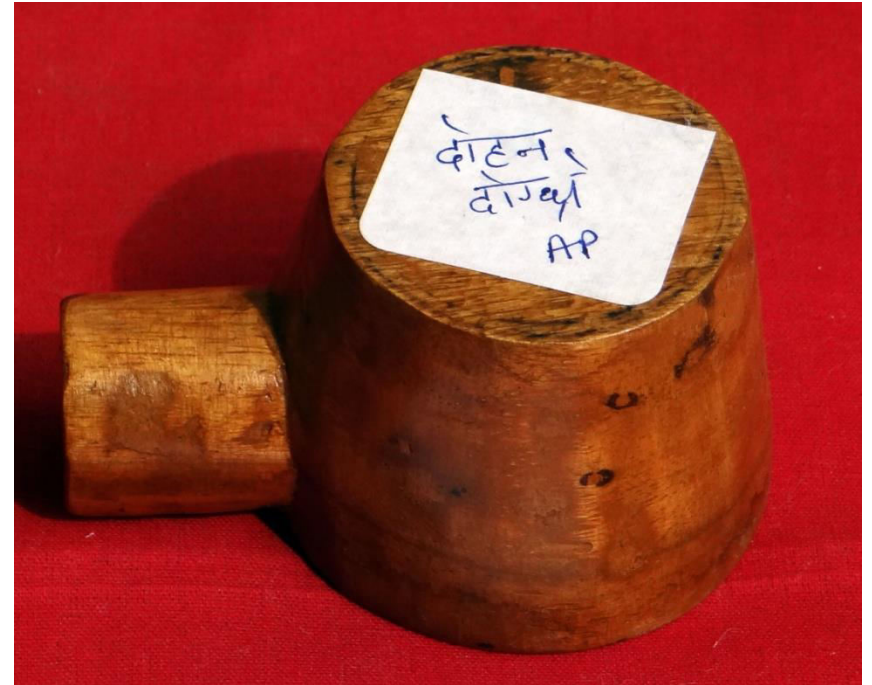 दोहन,
दोग्धी
AP